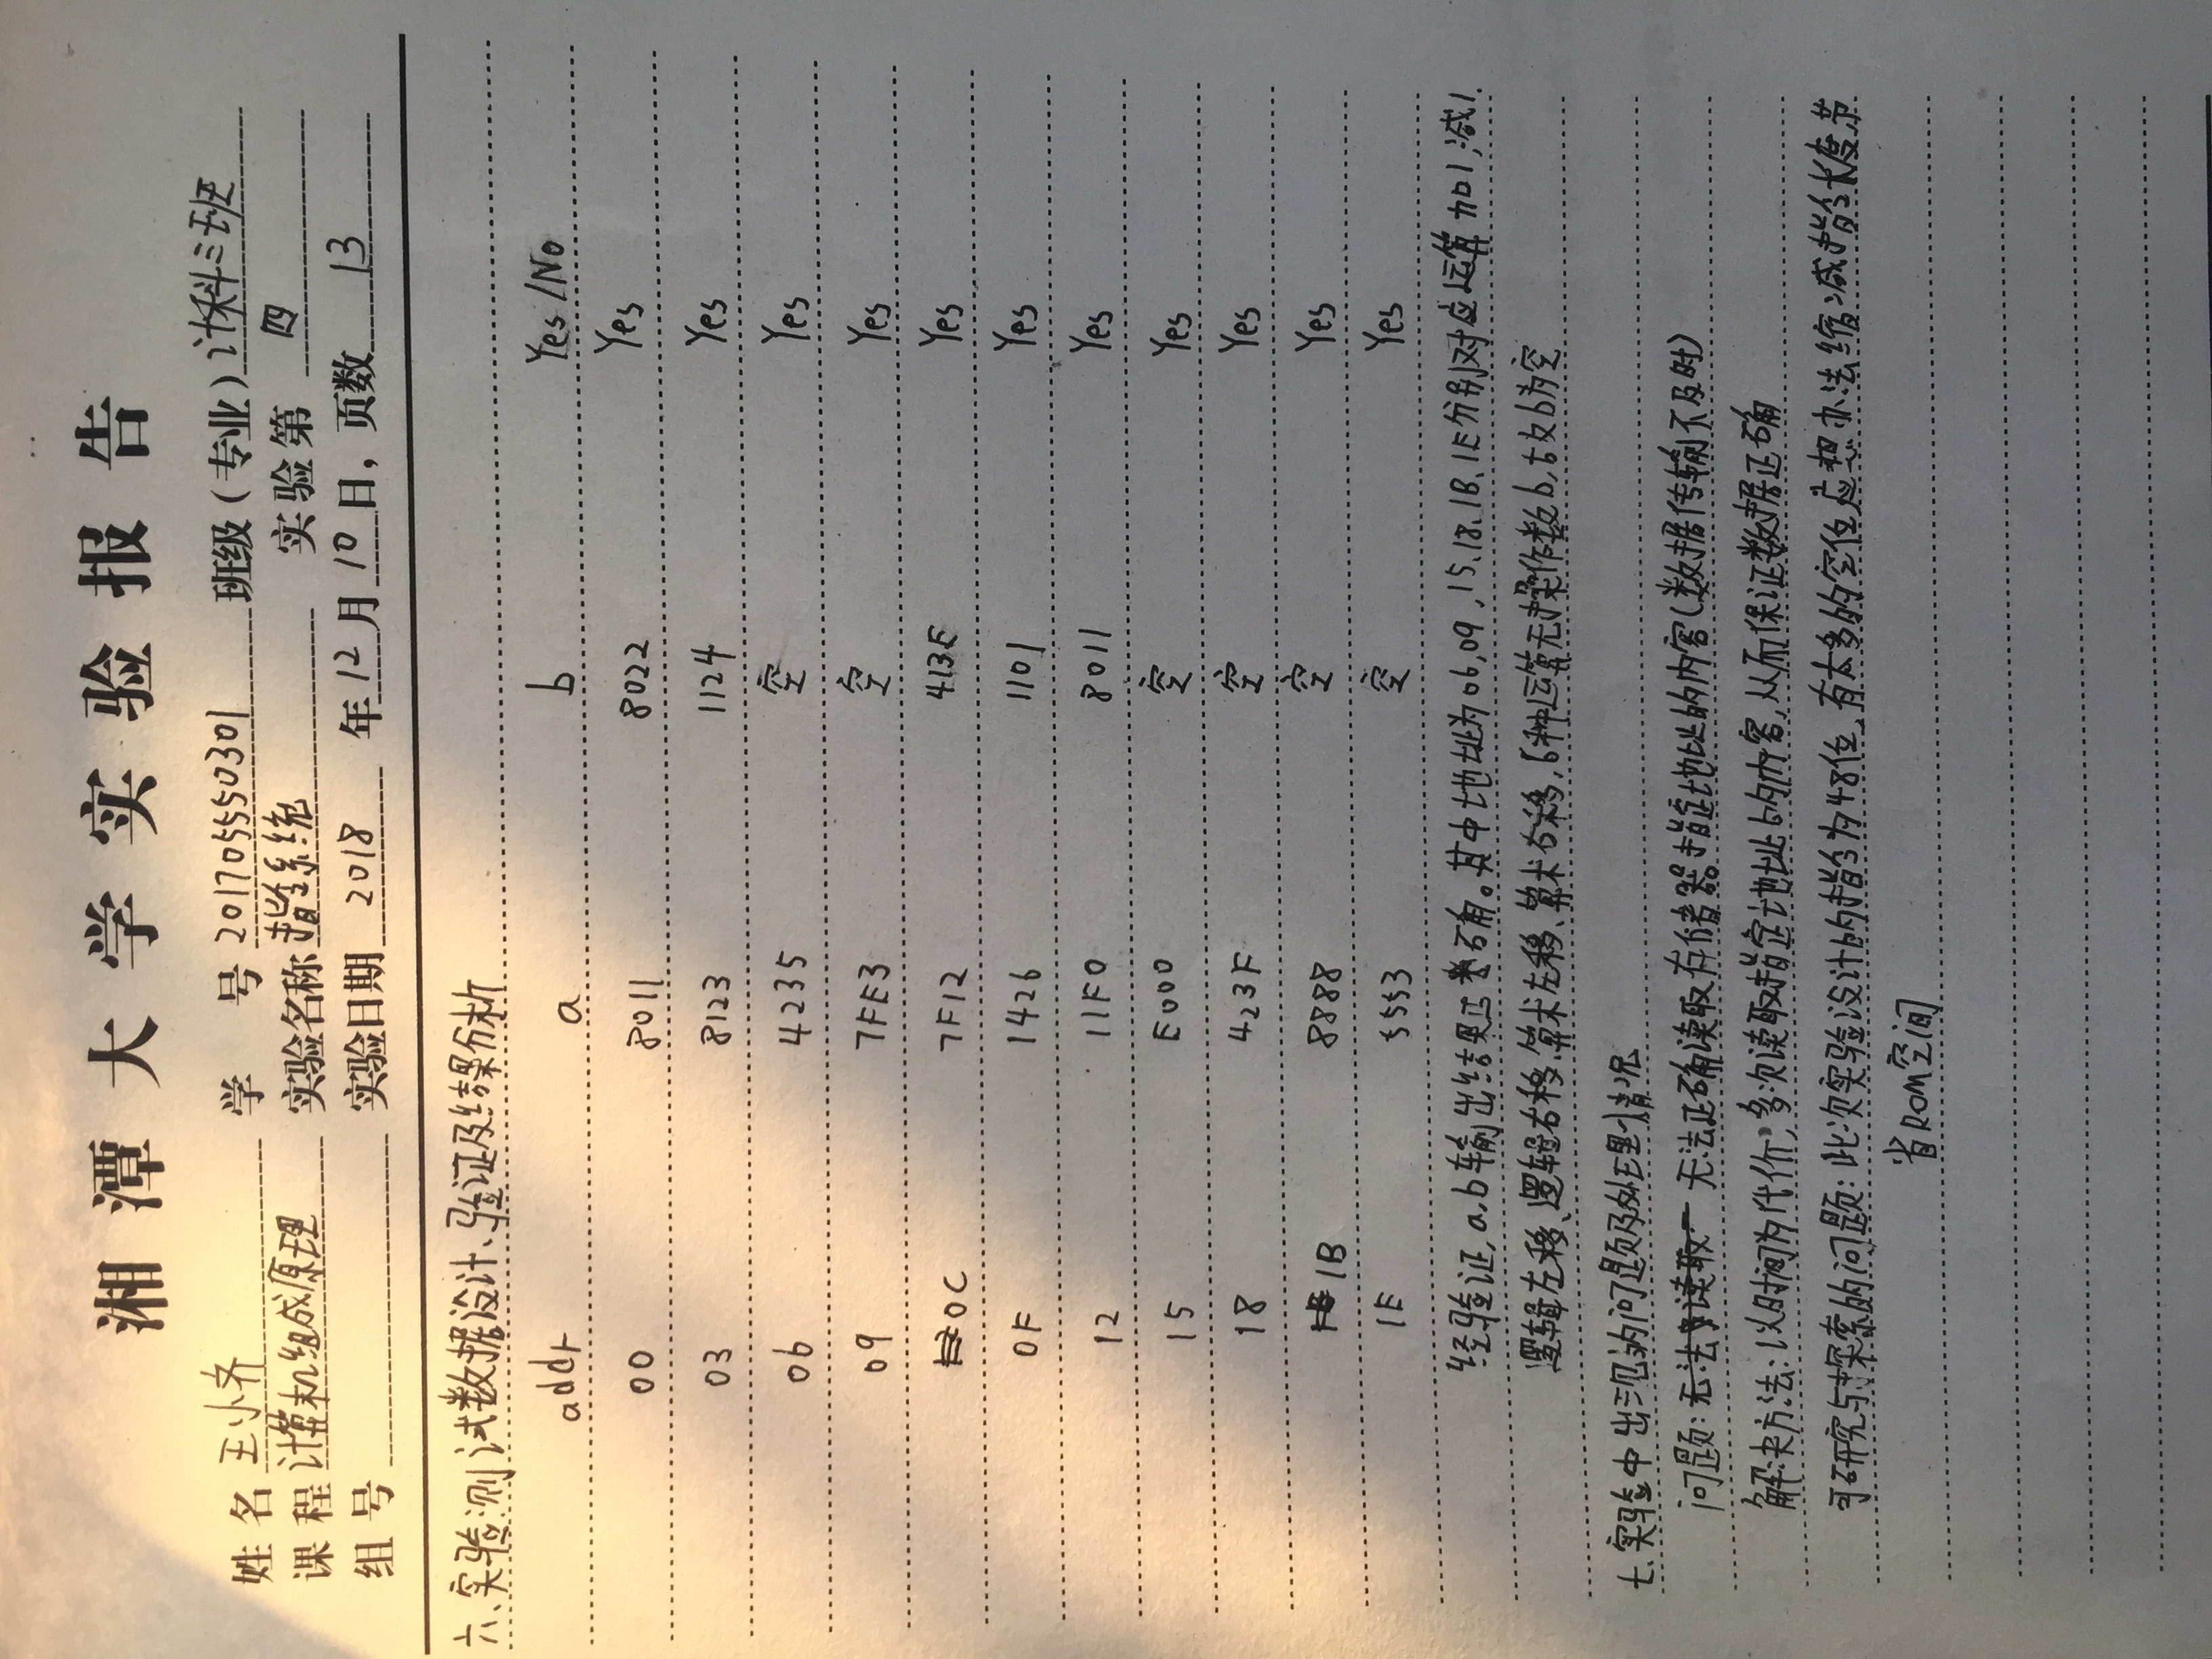 湘潭大学实验报告
姓 名 王小齐 学 号 2017055550301 班级(专业) 计科三班
课 程 计算机组成原理 实验名称 指令系统 实验第 四
组 号 实验日期 2018 年 12 月 10 日, 页数 13
六、实验测试数据设计、验证及结果分析
addr a b Yes/No
00 8011 8022 Yes
03 8123 1124 Yes
06 4235 空 Yes
09 7FE3 空 Yes
0C 7F12 413E Yes
0F 1426 1101 Yes
12 11F0 8011 Yes
15 E000 空 Yes
18 423F 空 Yes
1B 8888 空 Yes
1E 5553 空 Yes
经验证, a、b输出结果正确。其中地址为06,09,15、18、1B、1E分别对应运算加1,减1.
逻辑左移、逻辑右移、算术左移、算术右移, 6种运算无操作数b, 故b为空
七、实验中出现的问题及处理情况
问题: 无法读取 无法正确读取存储器指定地址的内容(数据传输不及时)
解决方法: 以时间为代价,多次读取指定地址的内容,从而保证数据正确
可研究与探索的问题: 此次实验设计的指令为48位,有太多的空位,应想办法缩减指令长度,节
省ROM空间